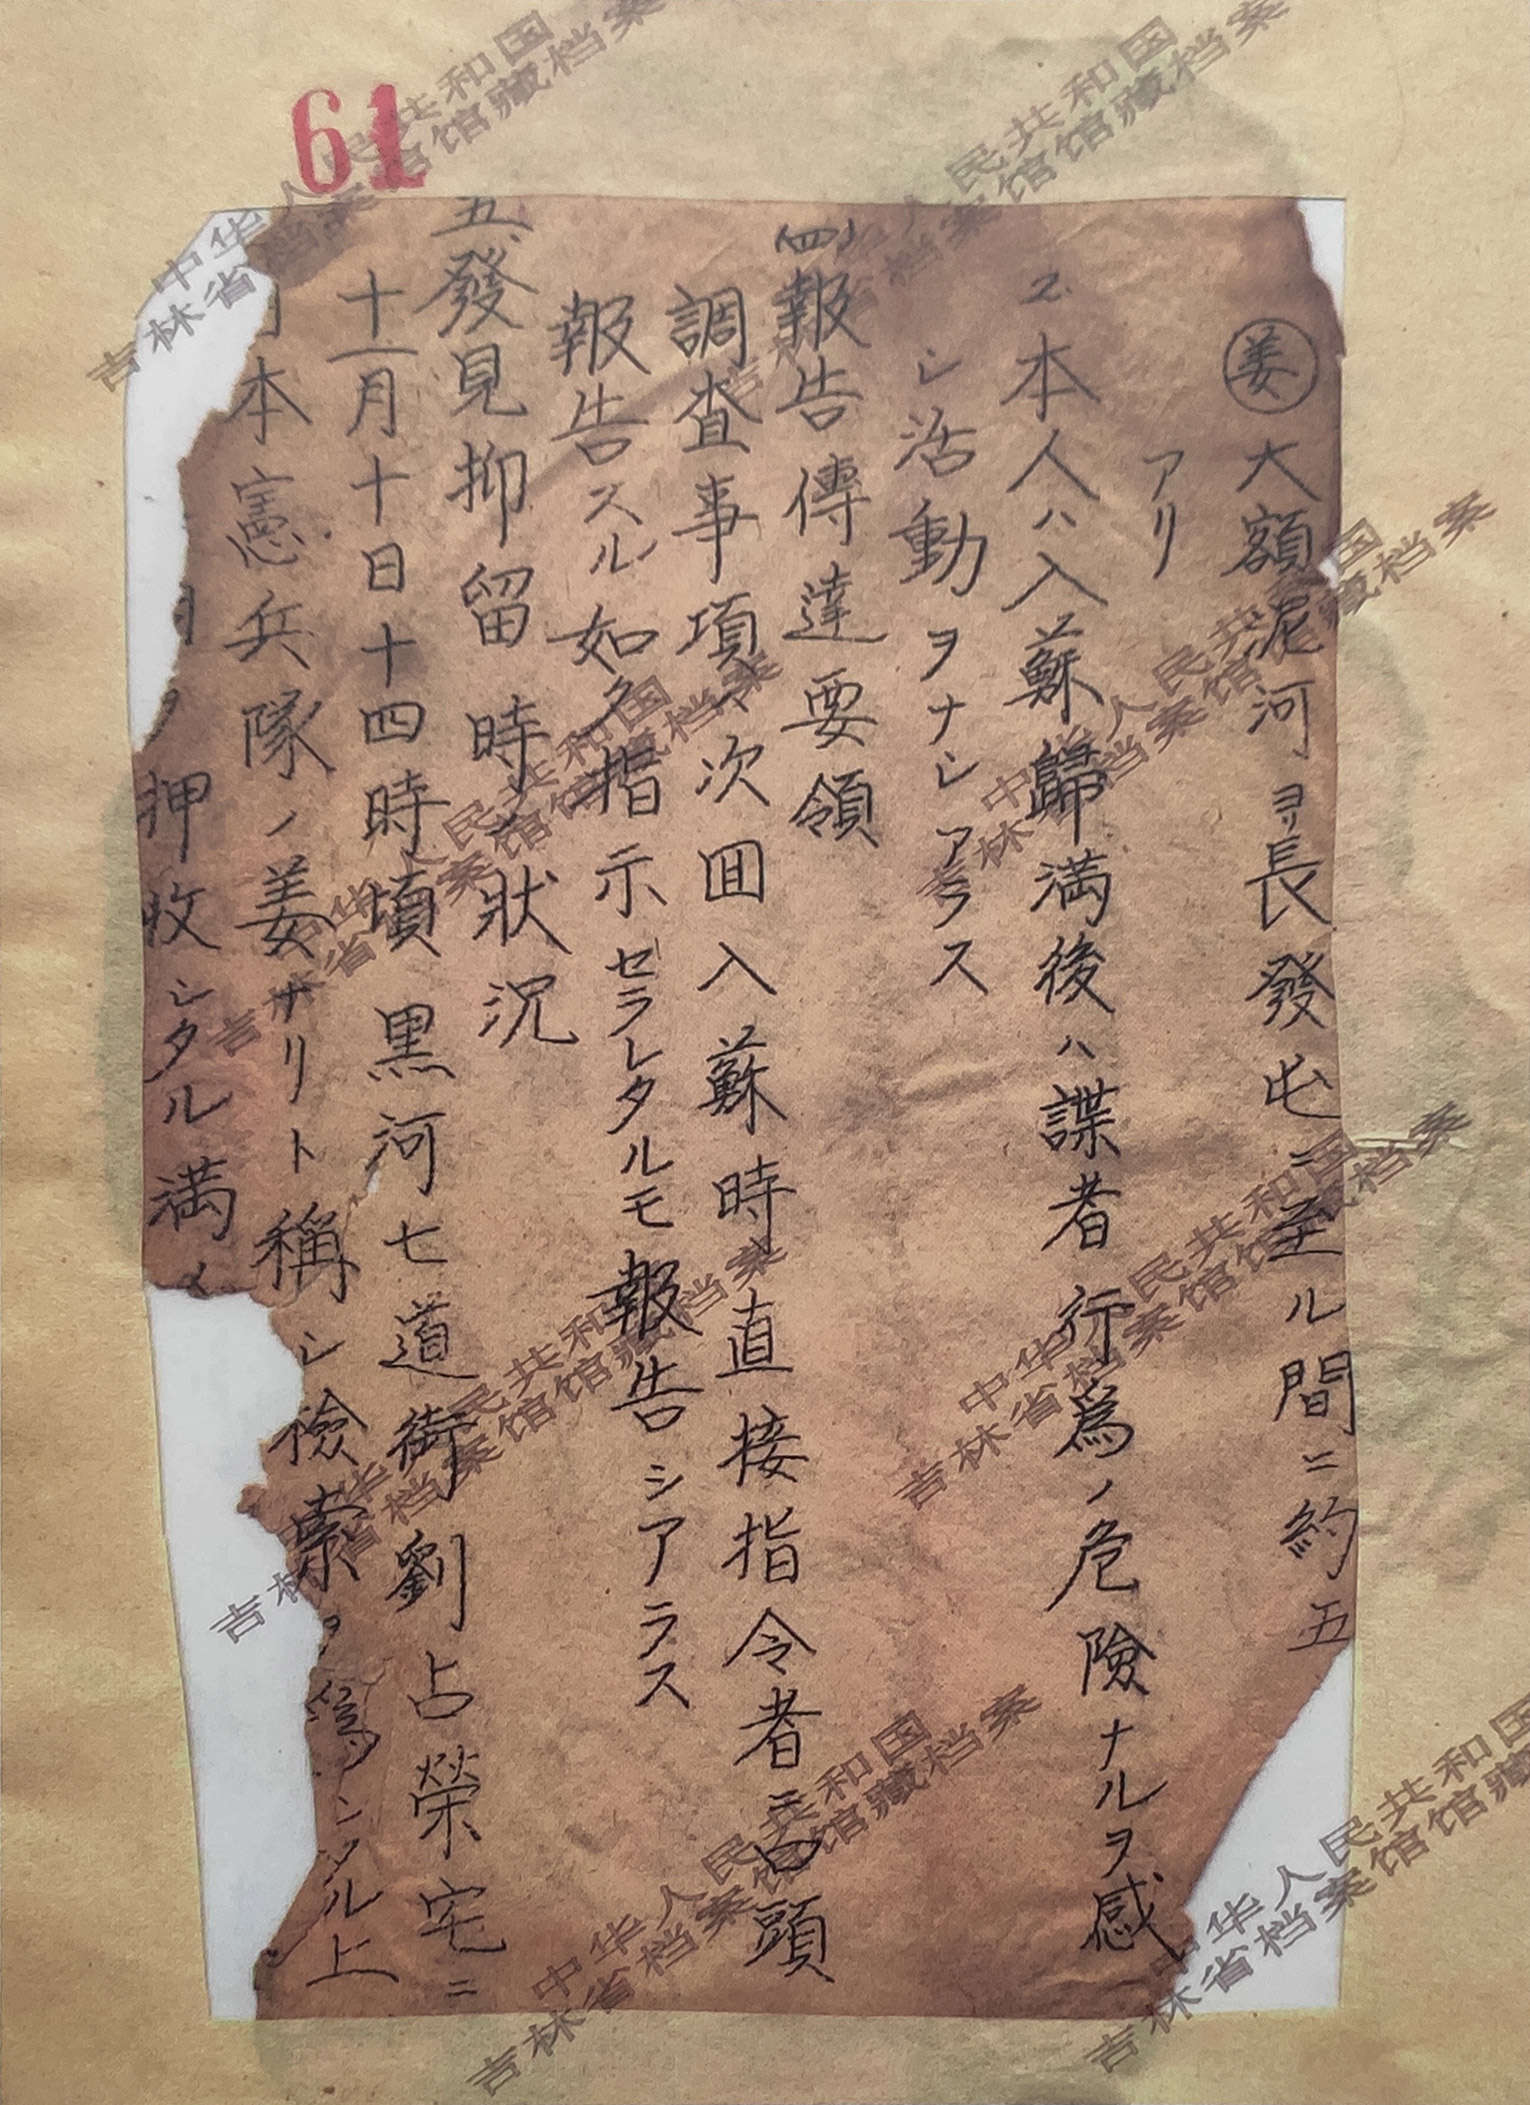 61
㊎大額泥河ヨリ長發屯ニ至ル間ニ約五
アリ
2.本人ハ入蘇歸満後ハ諜者行爲ノ危險ナルヲ感
シ活動ヲナシアラス
(四)報告傳達要領
調査事項ノ次回入蘇時直接指令者ニ口頭
報告スル如ク指示セラレタルモ報告シアラス
五、發見抑留時ノ狀況
十一月十日十四時頃黒河七道街劉占榮宅ニ
日本憲兵隊ノ姜ナリト稱シ檢索ヲ爲シタル上
押收シタル満
中华人民共和国
吉林省档案馆馆藏档案